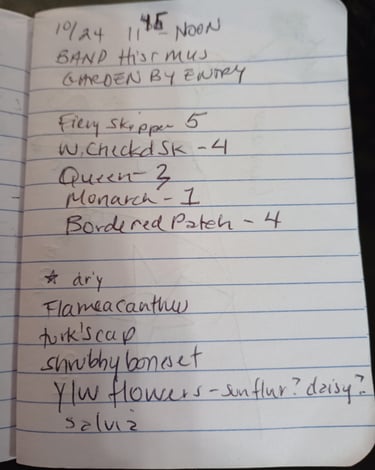 10/24 11 45 - NOON
BAND HIST MUS
GARDEN BY ENTRY
Fiery Skipper 5
W. Checkd Sk - 4
Queen - 3
Monarch - 1
Bordered Patch - 4
* dry
Flameacanthus
turk's cap
shrubby boneset
Ylw flowers - sunflur? daisy?
salvia